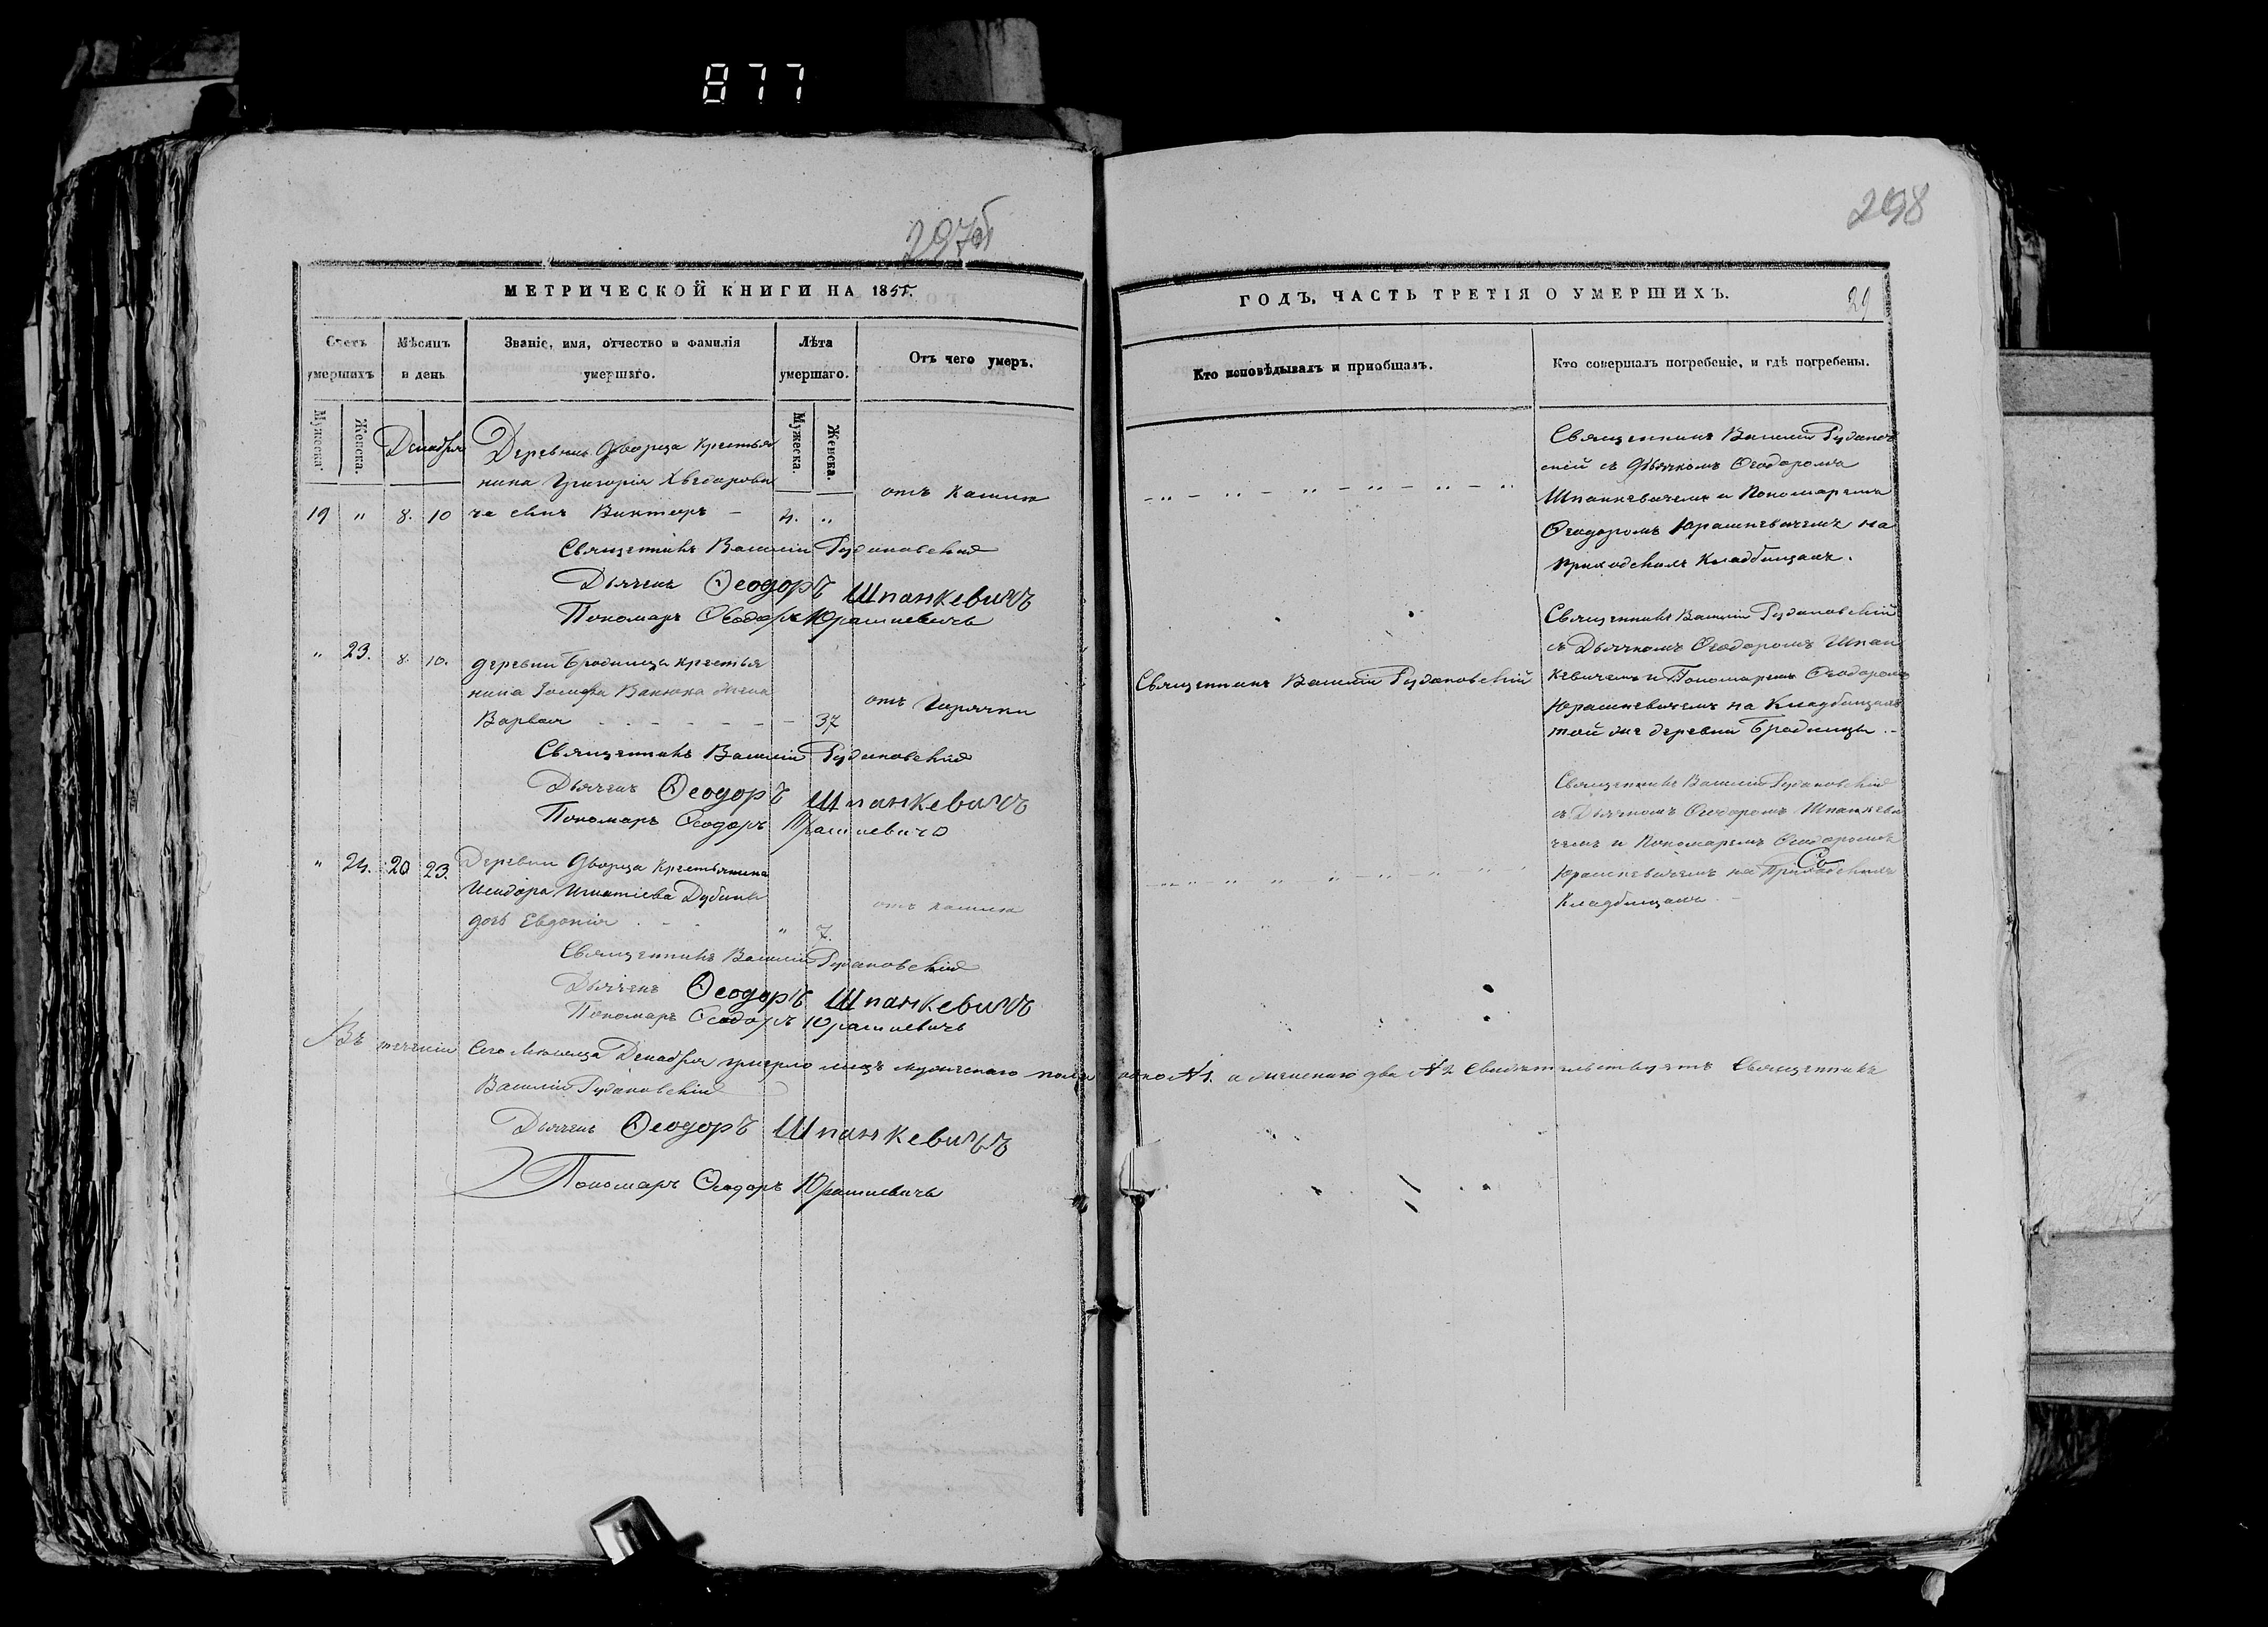 877
297об
298
МЕТРИЧЕСКОЙ КНИГИ НА 1855.
ГОДЪ, ЧАСТЬ ТРЕТІЯ О УМЕРШИХЪ.
29
Счетъ умершихъ
Мѣсяцъ и день
Званіе, имя, отчество и фамилія умершаго.
Лѣта умершаго.
Отъ чего умеръ.
Кто исповѣдывалъ и пріобщалъ.
Кто совершалъ погребеніе, и гдѣ погребены.
Мужеска.
Женска.
Мужеска.
Женска.
Декабря
Деревни Дворца крестья
нина Григорія Хведарови
19 " 8. 10 ча сынъ Викторъ — 4. "
отъ кашлю
Священникъ Василій Рудановскій
Дьячекъ Ѳеодоръ Шпанкевичъ
Пономарь Ѳеодоръ Юрашкевичъ
Священникъ Василій Руданов
скій съ Дьячкомъ Ѳеодоромъ
Шпанкевичемъ и Пономаремъ
Ѳеодоромъ Юрашкевичемъ на
приходскомъ кладбищахъ.
" 23. 8. 10. деревни Бродница крестья
нина Іосифа Ванюка жена
Варвара - - - - - - 37
отъ горячки
Священникъ Василій Рудановскій
Дьячекъ Ѳеодоръ Шпанкевичъ
Пономарь Ѳеодоръ Юрашкевичъ
Священникъ Василій Рудановскій
Священникъ Василій Рудановскій
съ Дьячкомъ Ѳеодоромъ Шпан
кевичемъ и Пономаремъ Ѳеодоромъ
Юрашкевичемъ на кладбищахъ
той же деревни Бродницы.
" 24. 20 23. Деревни Дворца крестьянина
Исидора Игнатіева Дубины
дочь Евдокія - - " 7.
отъ кашлю
Священникъ Василій Рудановскій
Дьячекъ Ѳеодоръ Шпанкевичъ
Пономарь Ѳеодоръ Юрашкевичъ
Священникъ Василій Рудановскій
съ Дьячкомъ Ѳеодоромъ Шпанкеви
чемъ и Пономаремъ Ѳеодоромъ
Юрашкевичемъ на Приходскихъ
кладбищахъ
Въ теченіи сего мѣсяца Декабря умерло лицъ мужескаго пола одно №1. а женскаго два №2 Свидѣтельствуетъ Священникъ
Василій Рудановскій
Дьячекъ Ѳеодоръ Шпанкевичъ
Пономарь Ѳеодоръ Юрашкевичъ